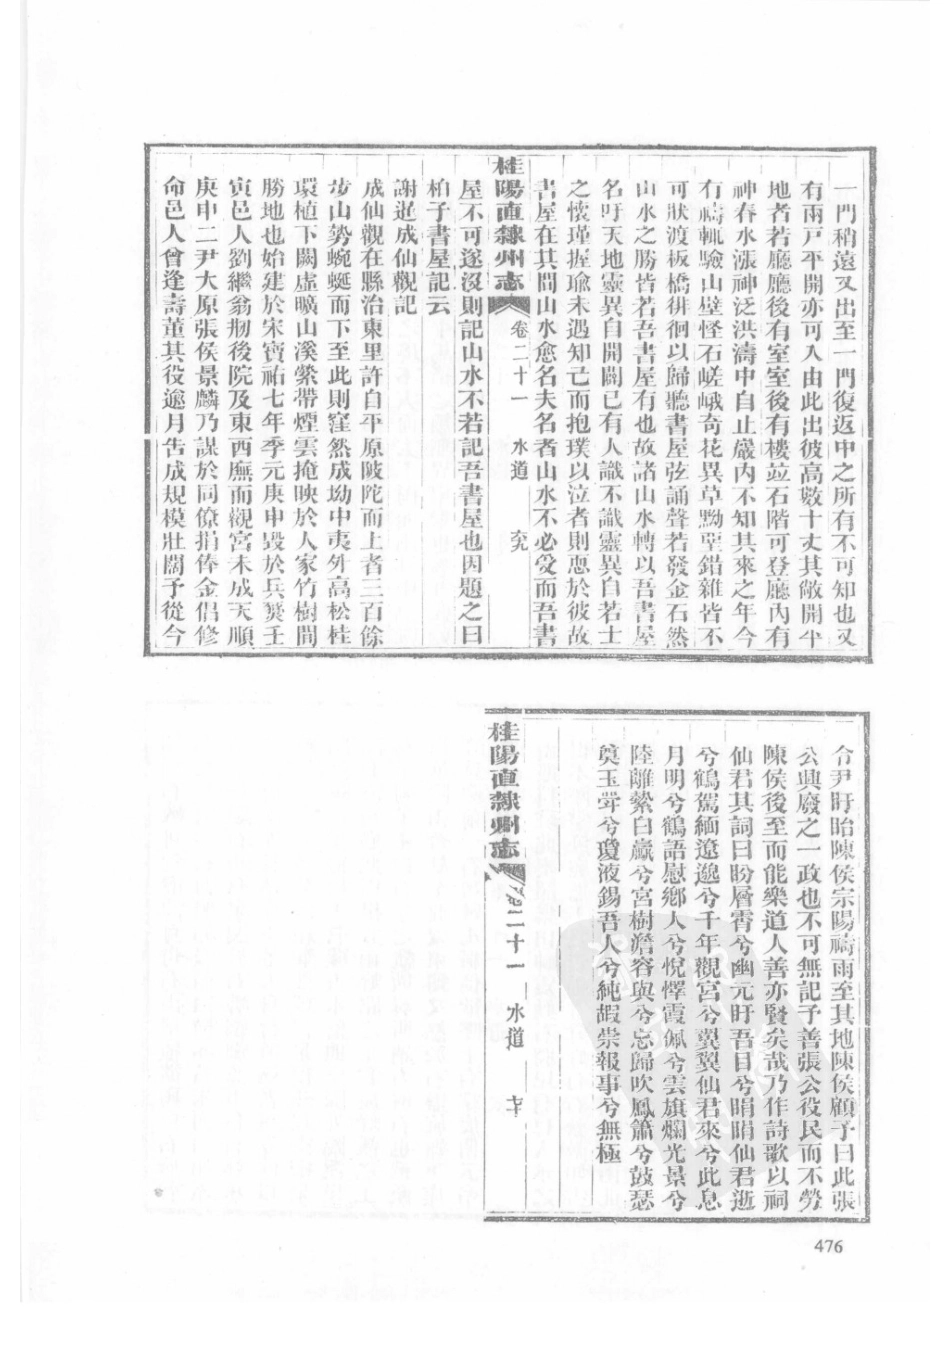 一門稍遠又出至一門復返中之所有不可知也又
有兩戸平開亦可入由此出彼高數十丈其敞開平
地者若廳廳後有室室後有樓竝石階可登廳內有
神春水漲神泛洪濤中自止巖内不知其來之年今
有禱輒驗山壁怪石嵯峨奇花異草黝堊錯雜皆不
可狀渡板橋徘徊以歸聽書屋弦誦聲若發金石然
山水之勝皆若吾書屋有也故諸山水轉以吾書屋
名吁天地靈異自開闢已有人識不識靈異自若士
之懷瑾握瑜未遇知己而抱璞以泣者則恧於彼故
書屋在其間山水愈名夫名者山水不必受而吾書
桂陽直隸州志 卷二十一 水道
屋不可遂沒則記山水不若記吾書屋也因題之曰
柏子書屋記云
謝遜成仙觀記
成仙觀在縣治東里許自平原陂陀而上者三百餘
步山勢蜿蜒而下至此則窪然成坳中夷外高松桂
環植下闞虛曠山溪縈帶煙雲掩映於人家竹樹間
勝地也始建於宋寶祐七年季元庚申毀於兵燹壬
寅邑人劉繼翁刱後院及東西廡而觀宮未成天順
庚申二尹大原張侯景麟乃謀於同僚捐俸金倡修
命邑人曾逢壽董其役逾月告成規模壯闊予從今
令尹盱眙陳侯宗陽禱雨至其地陳侯顧予曰此張
公興廢之一政也不可無記予善張公役民而不勞
陳侯後至而能樂道人善亦賢矣哉乃作詩歌以祠
仙君其詞曰盼層霄兮幽元盱吾目兮睊睊仙君逝
兮鶴駕緬遼邈兮千年觀宮兮翼翼仙君來兮此息
月明兮鶴語慰鄉人兮悅懌霞佩兮雲旗爛光景兮
陸離縈白巖兮宮樹澹容與兮忘歸吹鳳簫兮鼓瑟
奠玉斝兮瓊液錫吾人兮純嘏崇報事兮無極
桂陽直隸州志 卷二十一 水道
476